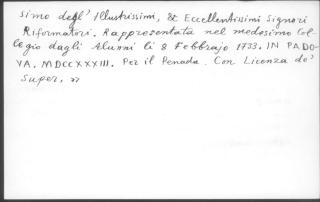 simo degl' Illustrissimi, & Eccellentissimi Signori
Riformatori. Rappresentata nel medesimo Col-
legio dagli Alunni li 8 Febbrajo 1733. IN PADO-
VA. MDCCXXXIII. Per il Penada. Con Licenza de'
Super. 27